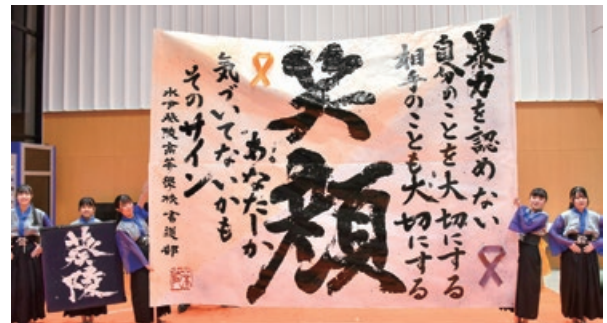 暴力を認めない
自分のことを大切にする
相手のことも大切にする
笑顔
あなたしか
気づいてないかも
そのサイン
水戸葵陵高等学校書道部
葵陵